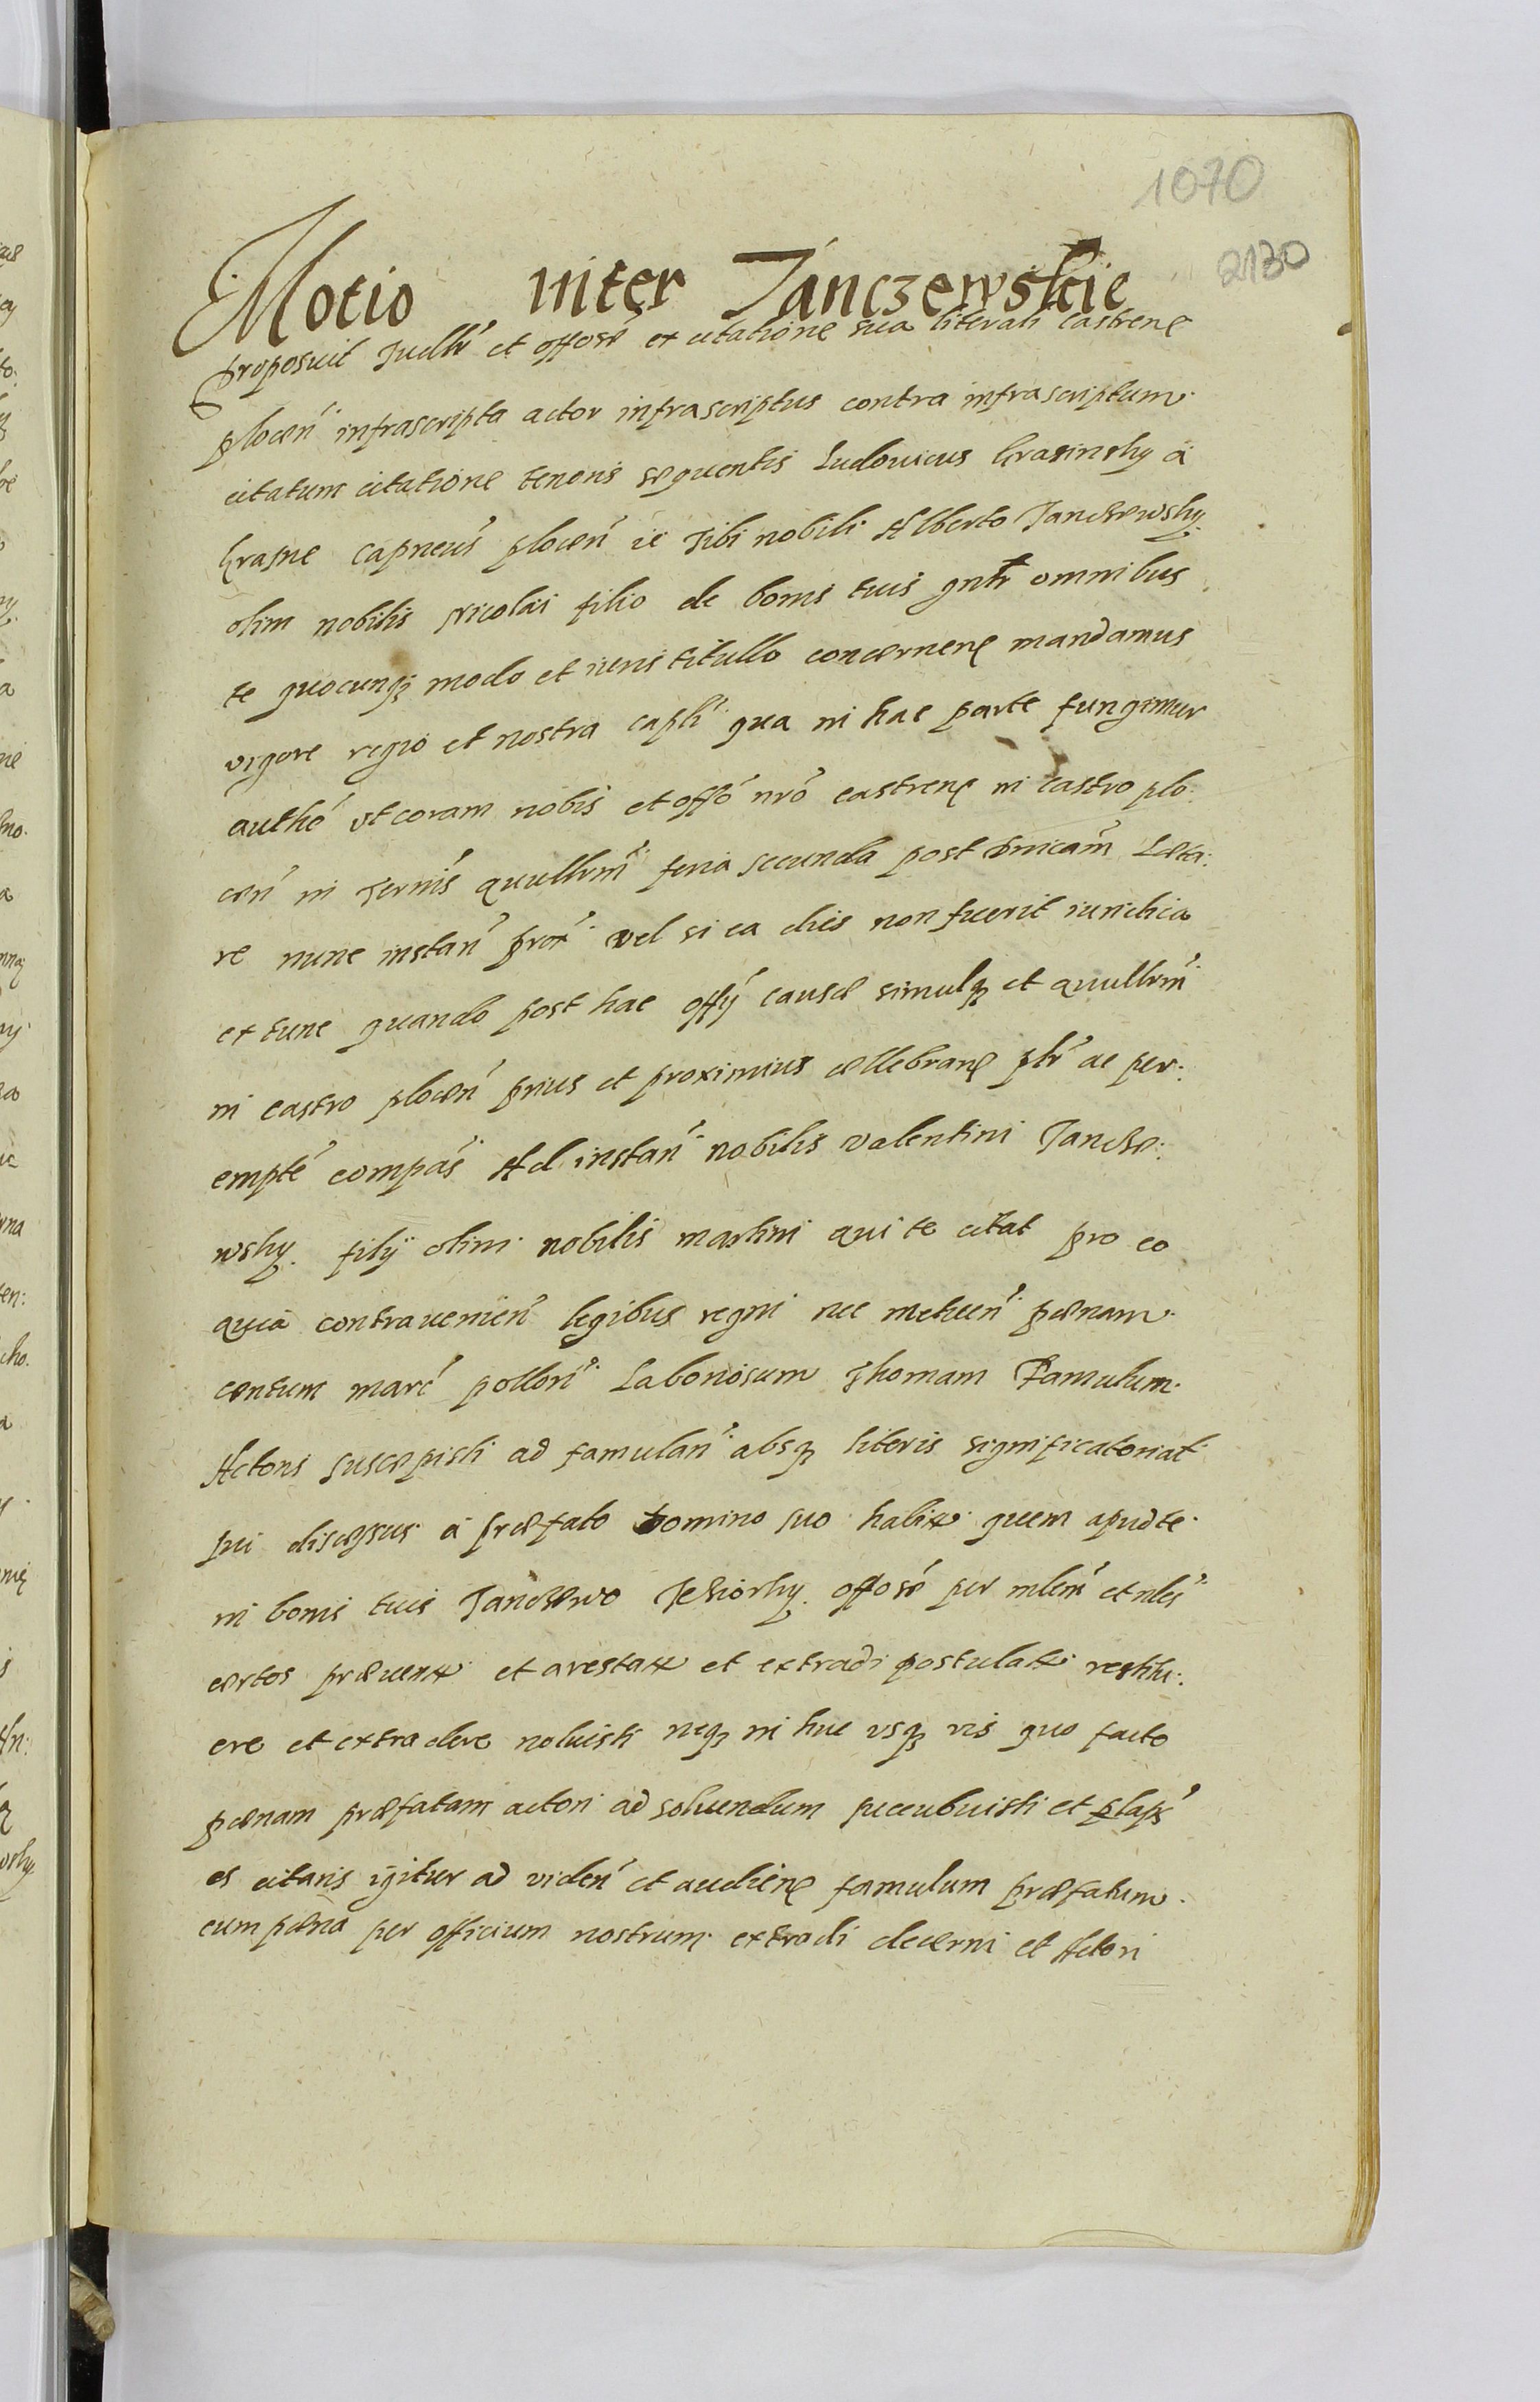 1070
2130
Motio inter Janczewskie
Proposuit Judlr et offose ex citatione sua literali castrene
plocen infrascripta actor infrascriptus contra infrascriptum
citatum citatione tenoris sequentis Ludouicus Krasinsky á
Krasne Capneus plocen ić Tibi nobili Alberto Janczewsky
olim nobilis Nicolai filio de bonis tuis gntr omnibus
te quocunq modo et iuris titullo concernene mandamus
vigore regio et nostra caplı qua in hac parte fungimur
authe vt coram nobis et offo nro castrene in castro plo:
cen in Terminis quullrm feria secunda post dnicam Læta:
re nunc instan prox vel si ea dies non fuerit iuridica
ex tunc quando post hac offy causæ simulq et quullrm
in castro plocen prius et proximius cellebrane ptr ac per:
empte compas Ad instan nobilis valentini Jancze:
wsky filij olim nobilis martini qui te citat pro eo
quia contrauenien legibus regni nec metuen pænam
centum marc pollon Laboriosum Thomam Famulum
Actoris suscepisti ad famulan absq literis significatoriat
sui discessus á præfato domino suo habit quem apud te
in bonis tuis Janczewo Jeziorky offose per mlem et nles
certos præuent et arestat et extradi postulat restitu:
ere et extradere noluisti neq in huc vsq vis quo facto
pænam præfatam actori ad soluendum succubuisti et plaps
es citaris igitur ad viden et audiene famulum præfatum
cum pæna per officium nostrum extradi decerni et Actori